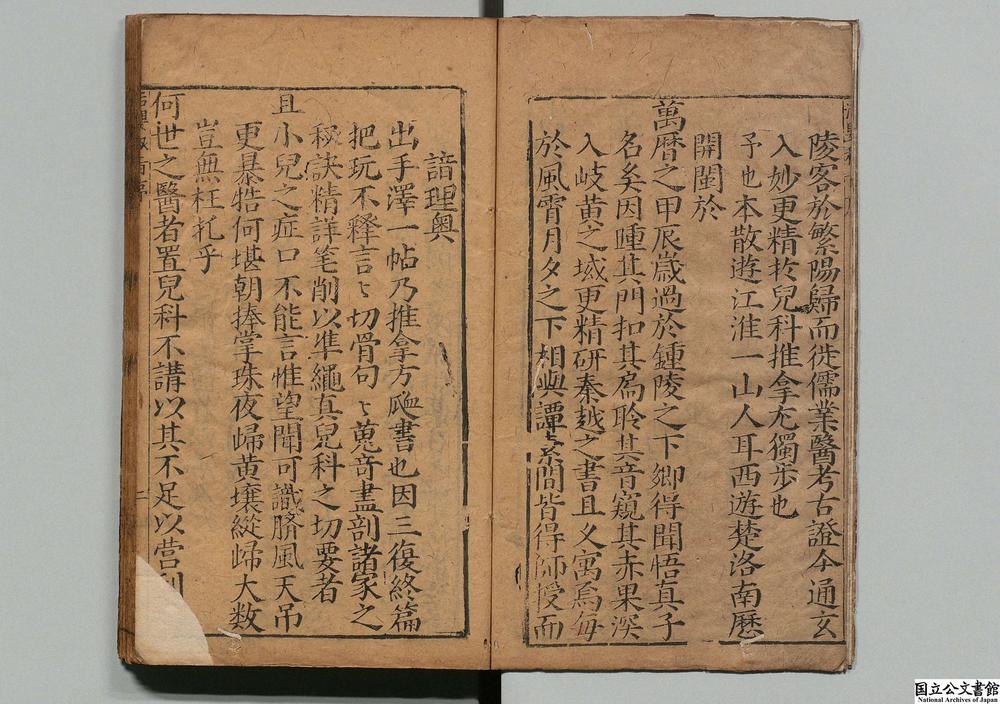 陵客於繁陽歸而徙儒業醫考古證今通玄
入妙更精扵兒科推拿尤獨步也
予也本散遊江淮一山人耳西遊楚洛南歷
閩於
萬曆之甲辰歲過於鍾陵之下卿得聞悟真子
名矣因踵其門扣其扄聆其音窺其赤果深
入岐黃之域更精研秦越之書且又寓焉每
於風霄月夕之下相與譚素問皆得師授而
諳理奧
出手澤一帖乃推拿方𢇮書也因三復終篇
把玩不釋言〻切骨句〻蒐奇盡剖諸家之
秘訣精詳筆削以準繩真兒科之切要者
且
小兒之症口不能言惟望聞可識臍風天吊
更暴牿何堪朝捧掌珠夜歸黃壤縱歸大数
豈無枉扎乎
何世之醫者置兒科不講以其不足以营利
国立公文書館
National Archives of Japan